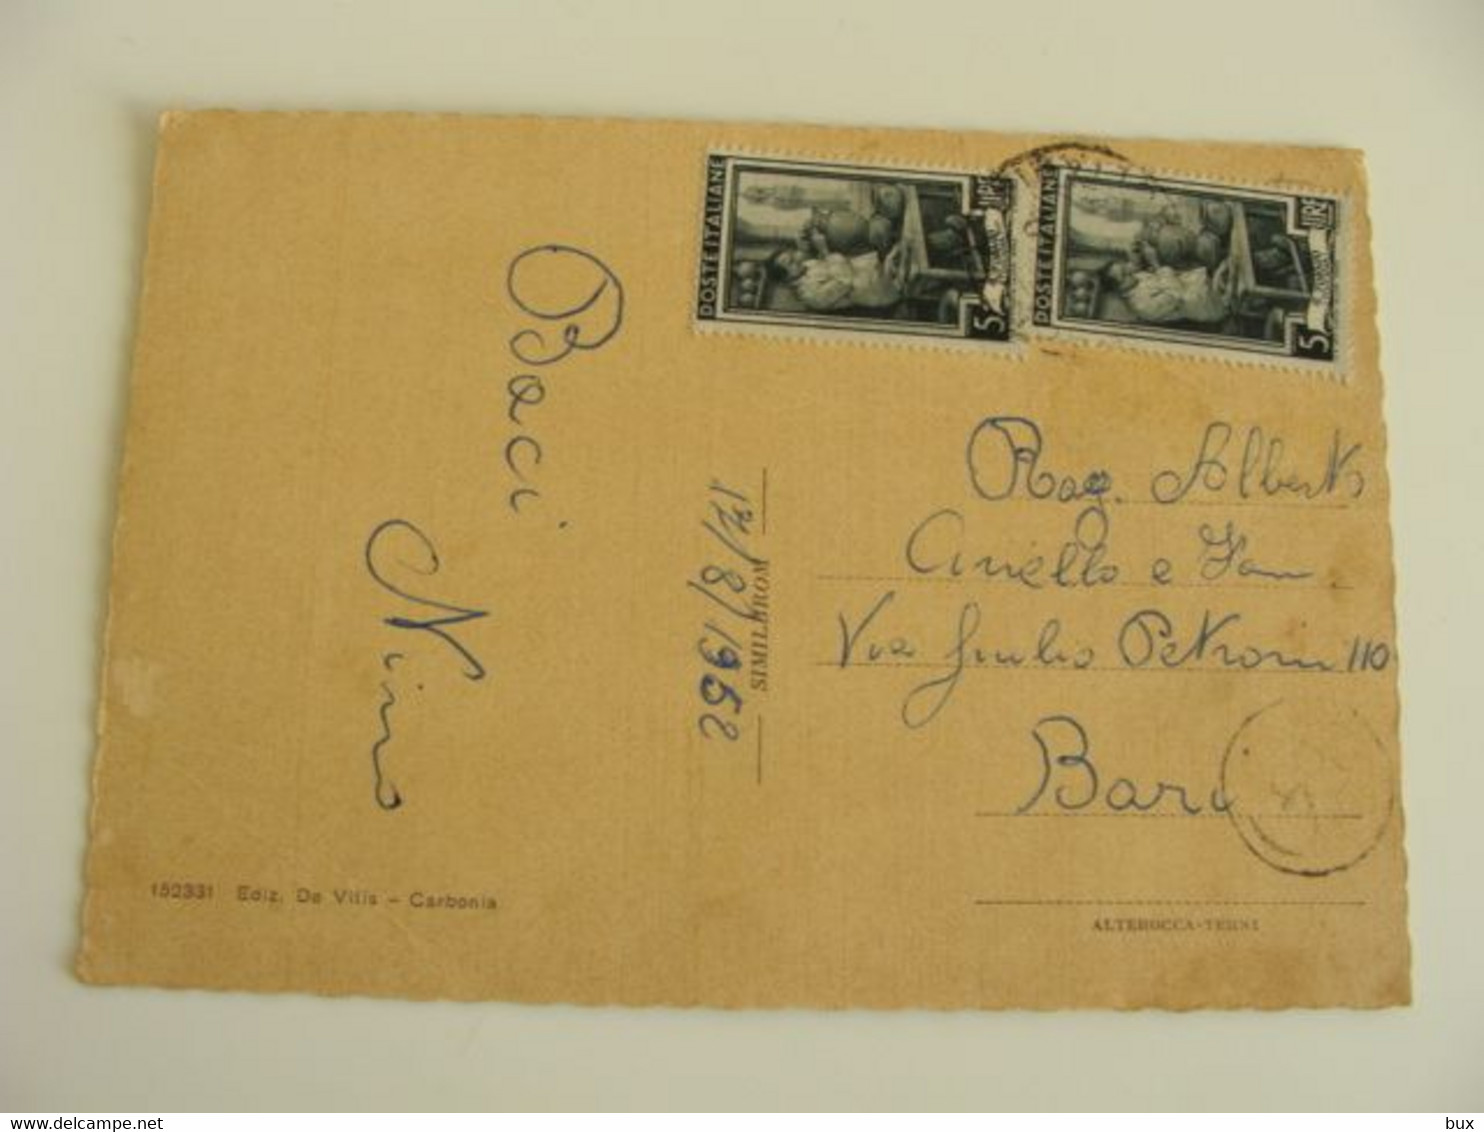 Baci
Nino
12/8/1952
SIMILCROM
POSTE ITALIANE
LIRE
5
POSTE ITALIANE
LIRE
5
Rag. Alberto
Aniello e Fam.
Via Giulio Petroni 110
Bari
152331 Ediz. De Vitis - Carbonia
ALTEROCCA-TERNI
bux